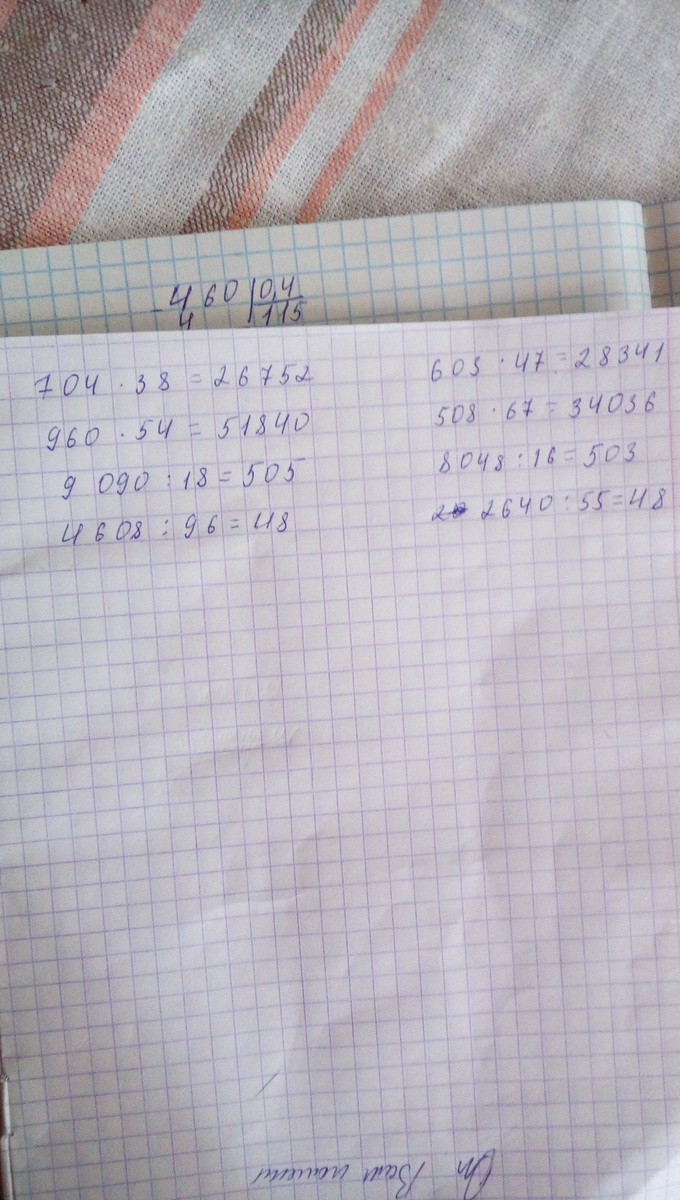 460 | 0,4
4 115
704 · 38 = 26752
960 · 54 = 51840
9 090 : 18 = 505
4608 : 96 = 48
603 · 47 = 28341
508 · 67 = 34036
8048 : 16 = 503
2640 : 55 = 48
Вам